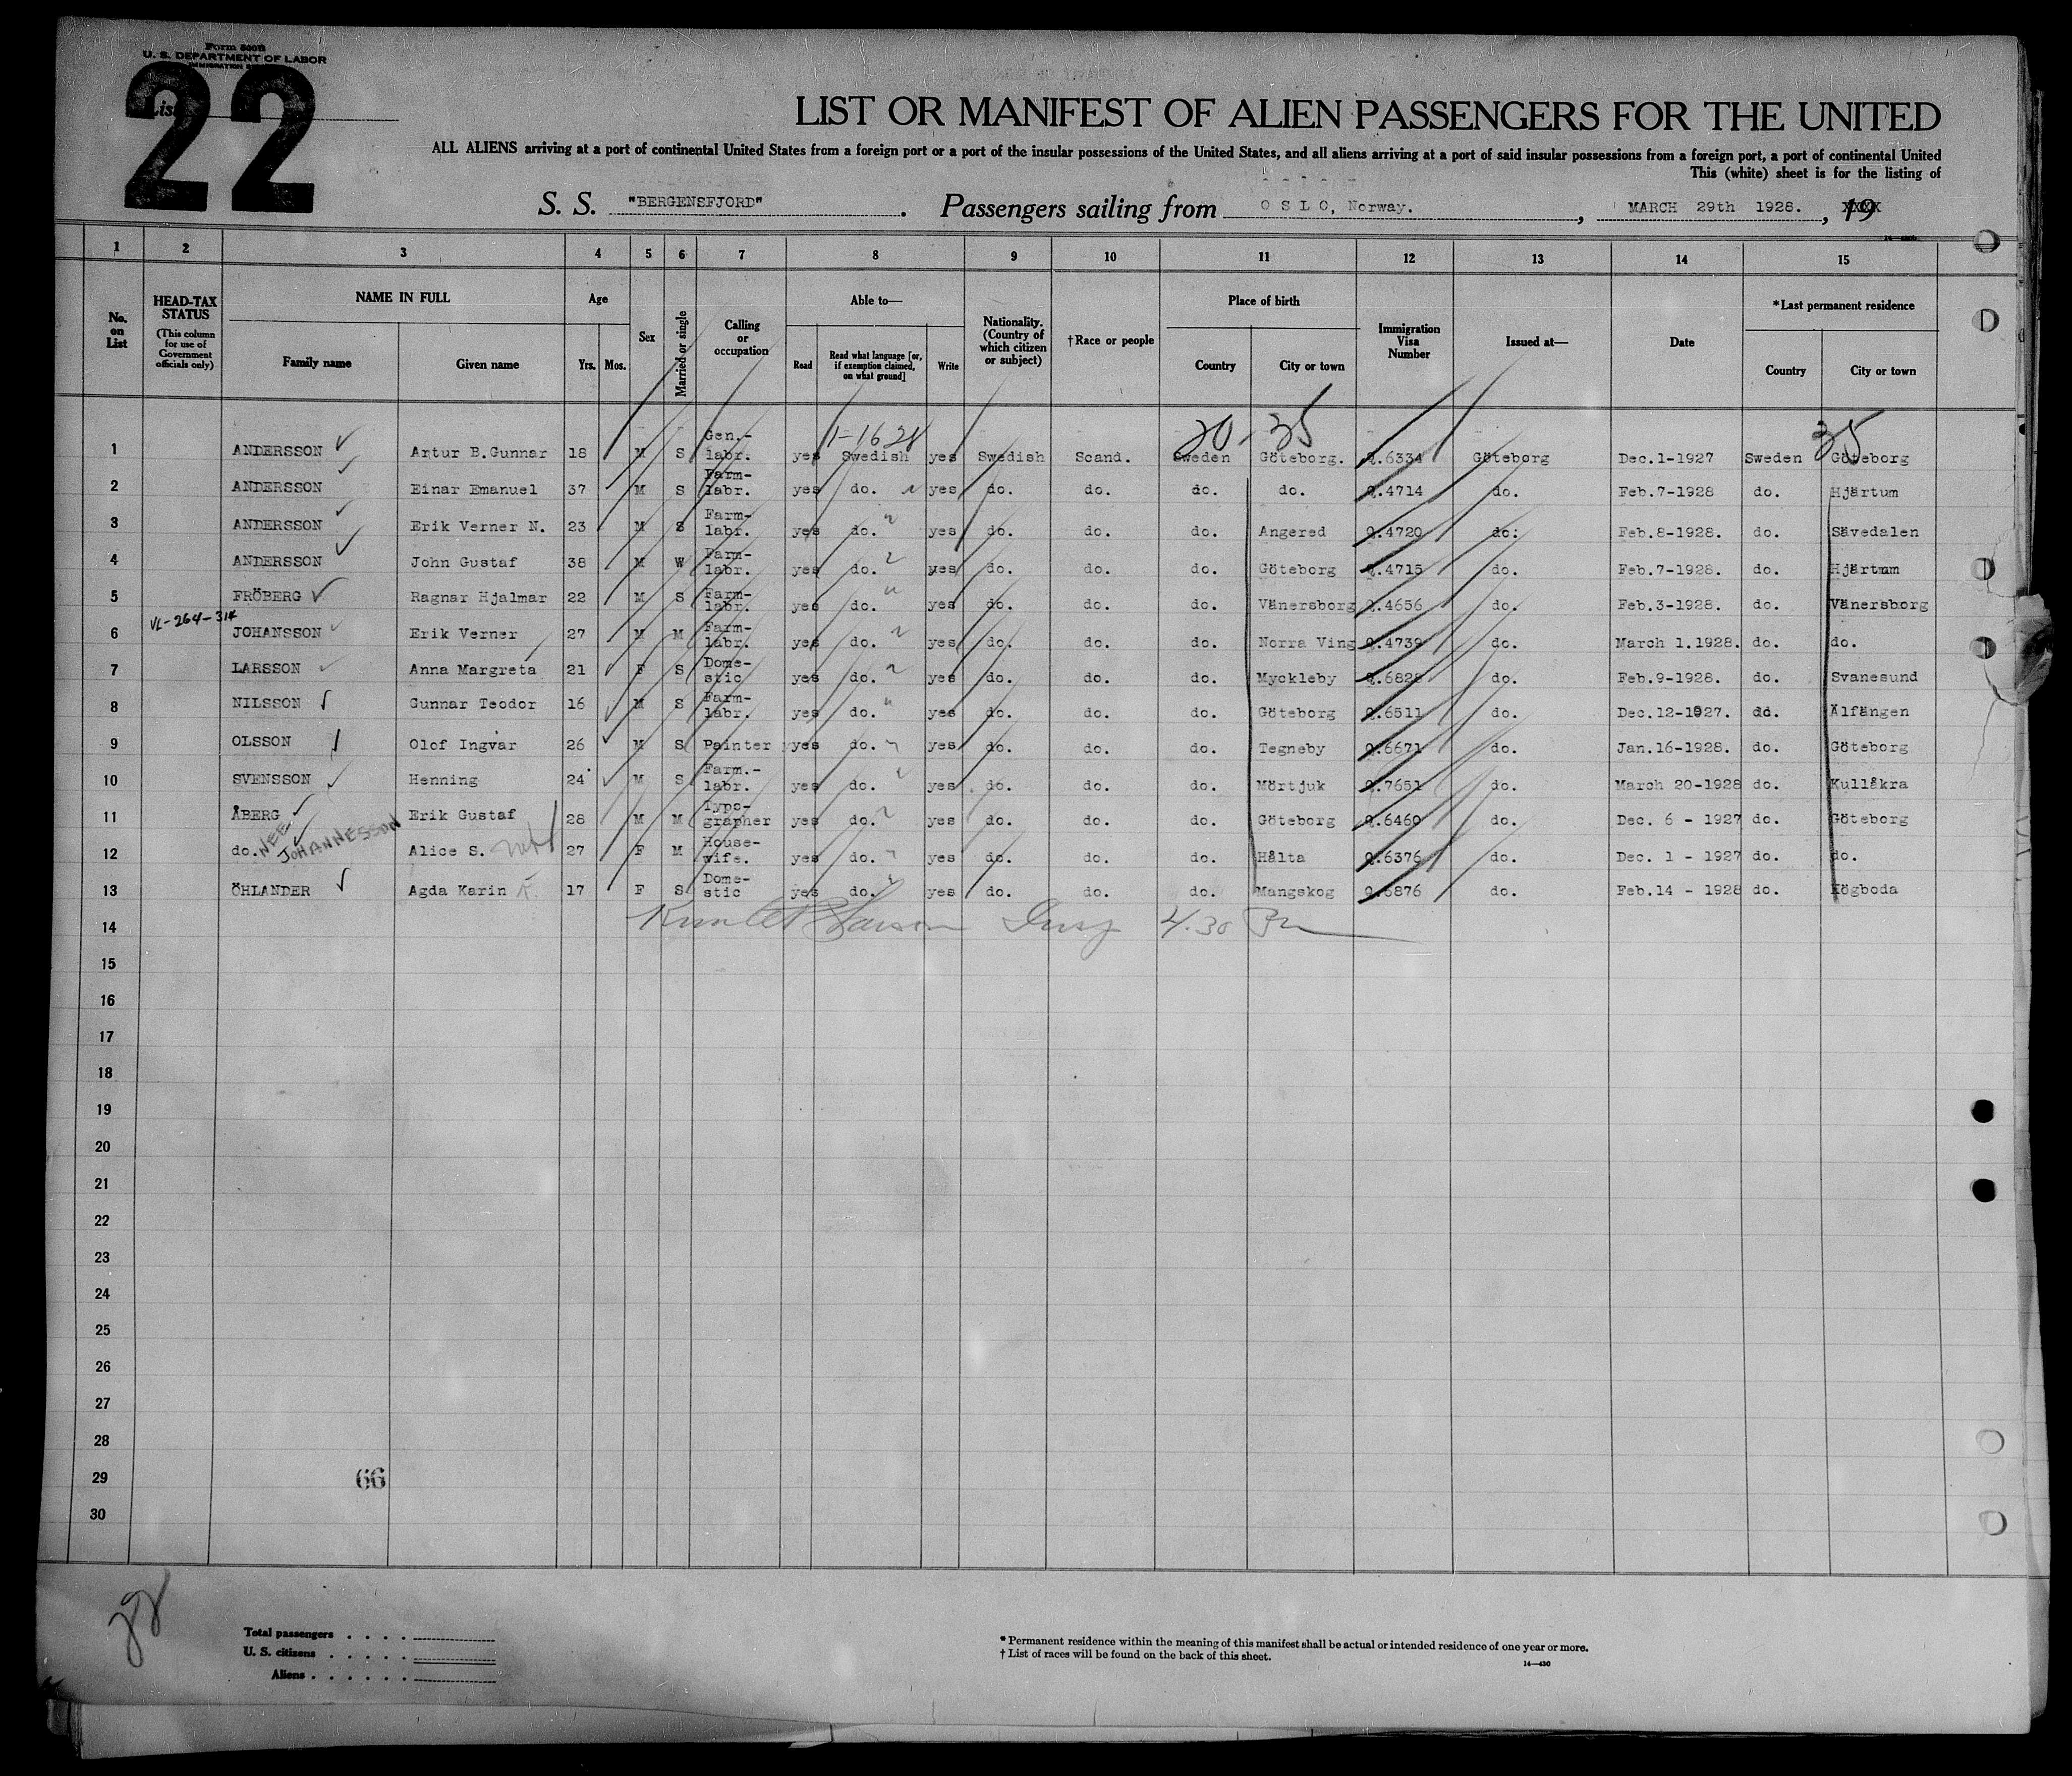 Form 500B
U. S. DEPARTMENT OF LABOR
22
LIST OR MANIFEST OF ALIEN PASSENGERS FOR THE UNITED
ALL ALIENS arriving at a port of continental United States from a foreign port or a port of the insular possessions of the United States, and all aliens arriving at a port of said insular possessions from a foreign port, a port of continental United
This (white) sheet is for the listing of
S. S. "BERGENSFJORD". Passengers sailing from O S L O, Norway. , MARCH 29th 1928. , 19 XXXX
1 2 3 4 5 6 7 8 9 10 11 12 13 14 15
No. on List
HEAD-TAX STATUS (This column for use of Government officials only)
NAME IN FULL Family name Given name
Age Yrs. Mos.
Sex
Married or single
Calling or occupation
Able to— Read Read what language [or, if exemption claimed, on what ground] Write
Nationality. (Country of which citizen or subject)
†Race or people
Place of birth Country City or town
Immigration Visa Number
Issued at—
Date
*Last permanent residence Country City or town
20-35 35
1 ANDERSSON Artur B.Gunnar 18 M S Gen.-labr. yes Swedish yes Swedish Scand. Sweden Göteborg. Q.6334 Göteborg Dec.1-1927 Sweden Göteborg
2 ANDERSSON Einar Emanuel 37 M S Farm-labr. yes do. yes do. do. do. do. Q.4714 do. Feb.7-1928 do. Hjärtum
3 ANDERSSON Erik Verner N. 23 M S Farm-labr. yes do. yes do. do. do. Angered Q.4720 do: Feb.8-1928. do. Sävedalen
4 ANDERSSON John Gustaf 38 M W Farm-labr. yes do. yes do. do. do. Göteborg Q.4715 do. Feb.7-1928. do. Hjärtum
5 FRÖBERG Ragnar Hjalmar 22 M S Farm-labr. yes do. yes do. do. do. Vänersborg Q.4656 do. Feb.3-1928. do. Vänersborg
VL-264-314
6 JOHANSSON Erik Verner 27 M M Farm-labr. yes do. yes do. do. do. Norra Ving Q.4739 do. March 1.1928. do. do.
7 LARSSON Anna Margreta 21 F S Dome-stic yes do. yes do. do. do. Myckleby Q.6828 do. Feb.9-1928. do. Svanesund
8 NILSSON Gunnar Teodor 16 M S Farm-labr. yes do. yes do. do. do. Göteborg Q.6511 do. Dec.12-1927. do. Älfängen
9 OLSSON Olof Ingvar 26 M S Painter yes do. yes do. do. do. Tegneby Q.6671 do. Jan.16-1928. do. Göteborg
10 SVENSSON Henning 24 M S Farm.-labr. yes do. yes do. do. do. Mörtjuk Q.7651 do. March 20-1928 do. Kullåkra
11 ÅBERG Erik Gustaf 28 M M Typo-grapher yes do. yes do. do. do. Göteborg Q.6460 do. Dec. 6 - 1927 do. Göteborg
12 do. NEE JOHANNESSON Alice S. 27 F M House-wife. yes do. yes do. do. do. Hålta Q.6376 do. Dec. 1 - 1927 do. do.
13 ÖHLANDER Agda Karin 17 F S Dome-stic yes do. yes do. do. do. Mangskog Q.5876 do. Feb.14 - 1928 do. Högboda
14 4.30
15
16
17
18
19
20
21
22
23
24
25
26
27
28
29 66
30
Total passengers
U. S. citizens
Aliens
* Permanent residence within the meaning of this manifest shall be actual or intended residence of one year or more.
† List of races will be found on the back of this sheet.
14—430